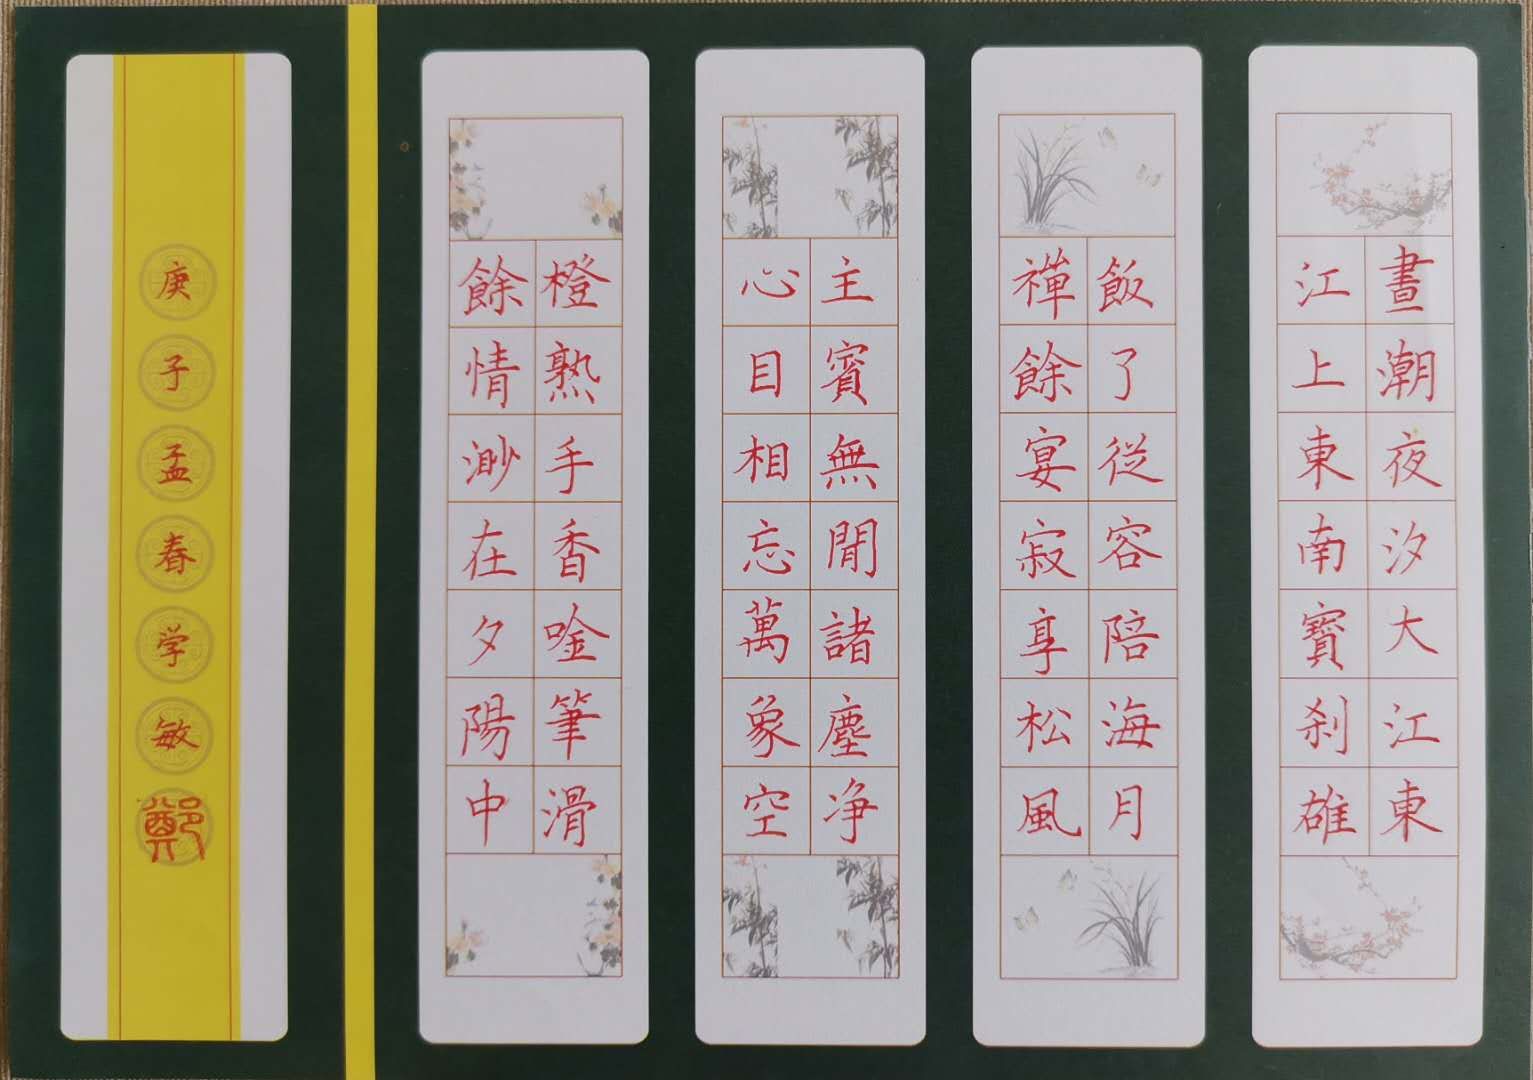 晝潮夜汐大江東
江上東南寳刹雄
飯了從容陪海月
禪餘宴寂享松風
主賓無間諸塵净
心目相忘萬象空
橙熟手香唫筆滑
餘情渺在夕陽中
庚子孟春学敏
鄭